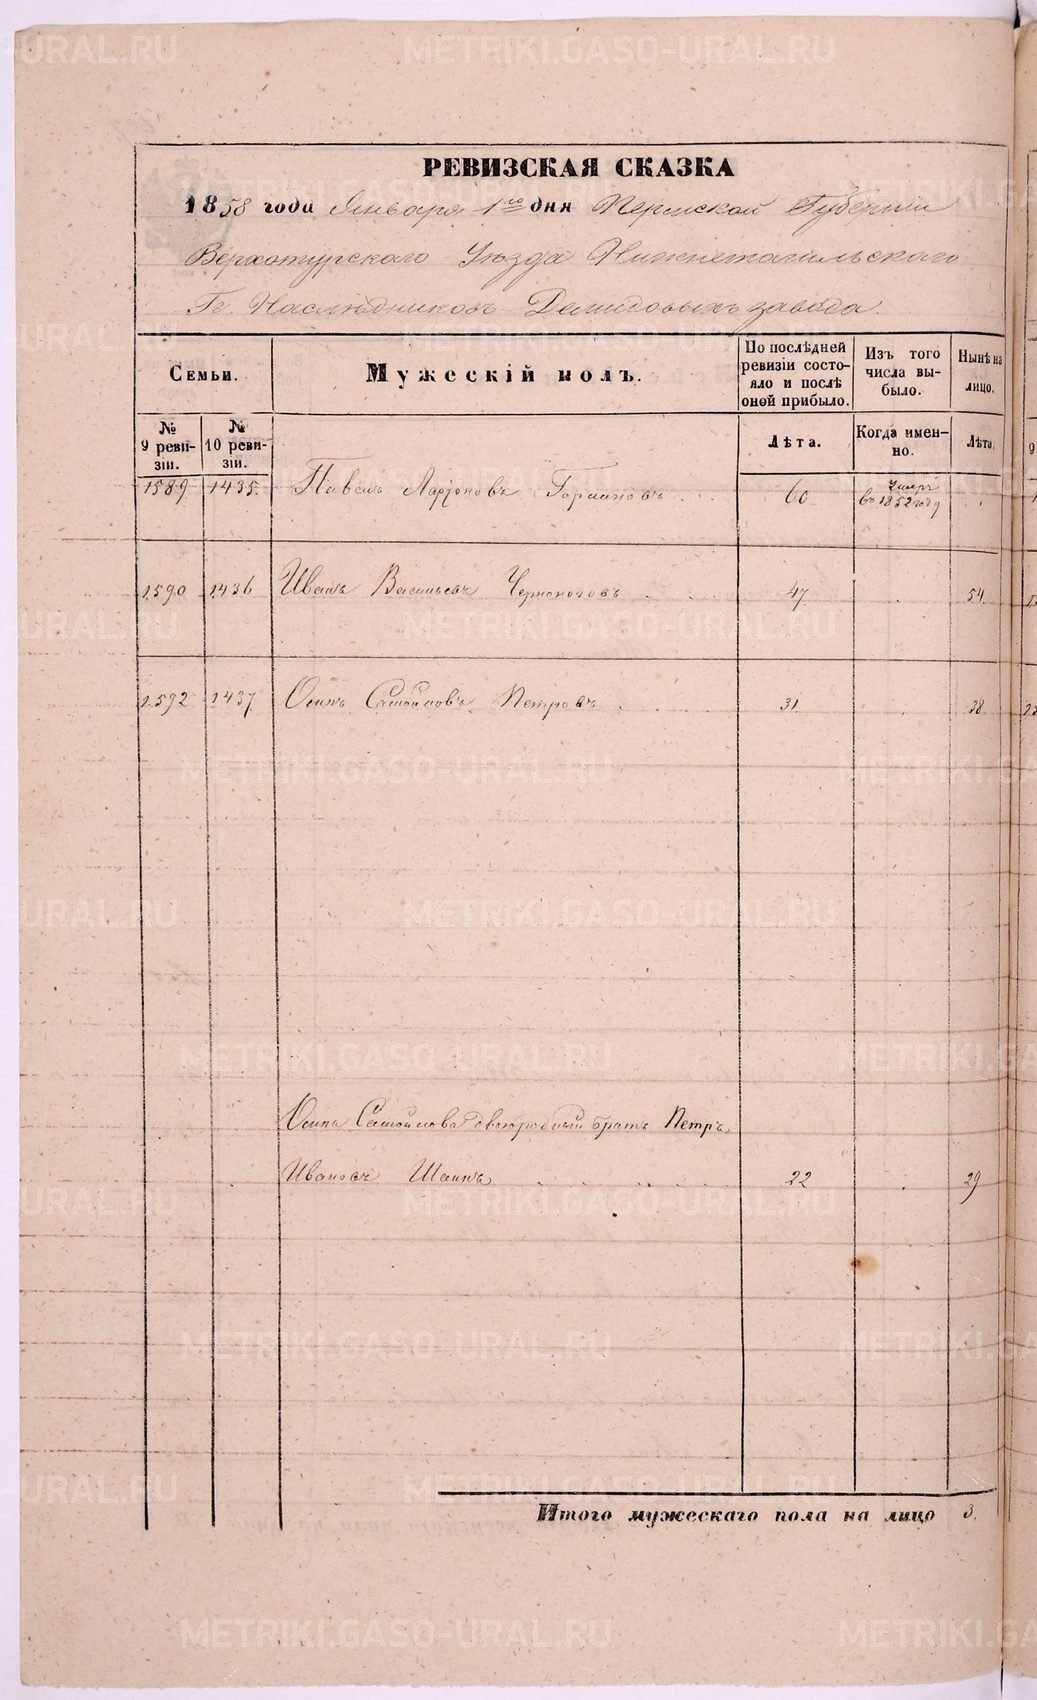 РЕВИЗСКАЯ СКАЗКА
1858 года Января 1го дня Пермской Губернии
Верхотурскаго Уѣзда Нижнетагильскаго
Гг. Наслѣдниковъ Демидовыхъ завода.
Семьи.
Мужескій полъ.
По послѣдней
ревизіи состо-
яло и послѣ
оной прибыло.
Изъ того
числа вы-
было.
Нынѣ на
лицо.
№
9 реви-
зіи.
№
10 реви-
зіи.
Лѣта.
Когда имен-
но.
Лѣта.
1589 1435. Павелъ Ларіоновъ 60 Умеръ
въ 1852 году
1590 1436 Иванъ Васильевъ Черноноговъ 47. 54.
1592 1437 Осипъ Самойловъ Петровъ 31 38
Осипа Самойлова двоюродный братъ Петръ
Ивановъ 22 29
Итого мужескаго пола на лицо 3.
METRIKI.GASO-URAL.RU